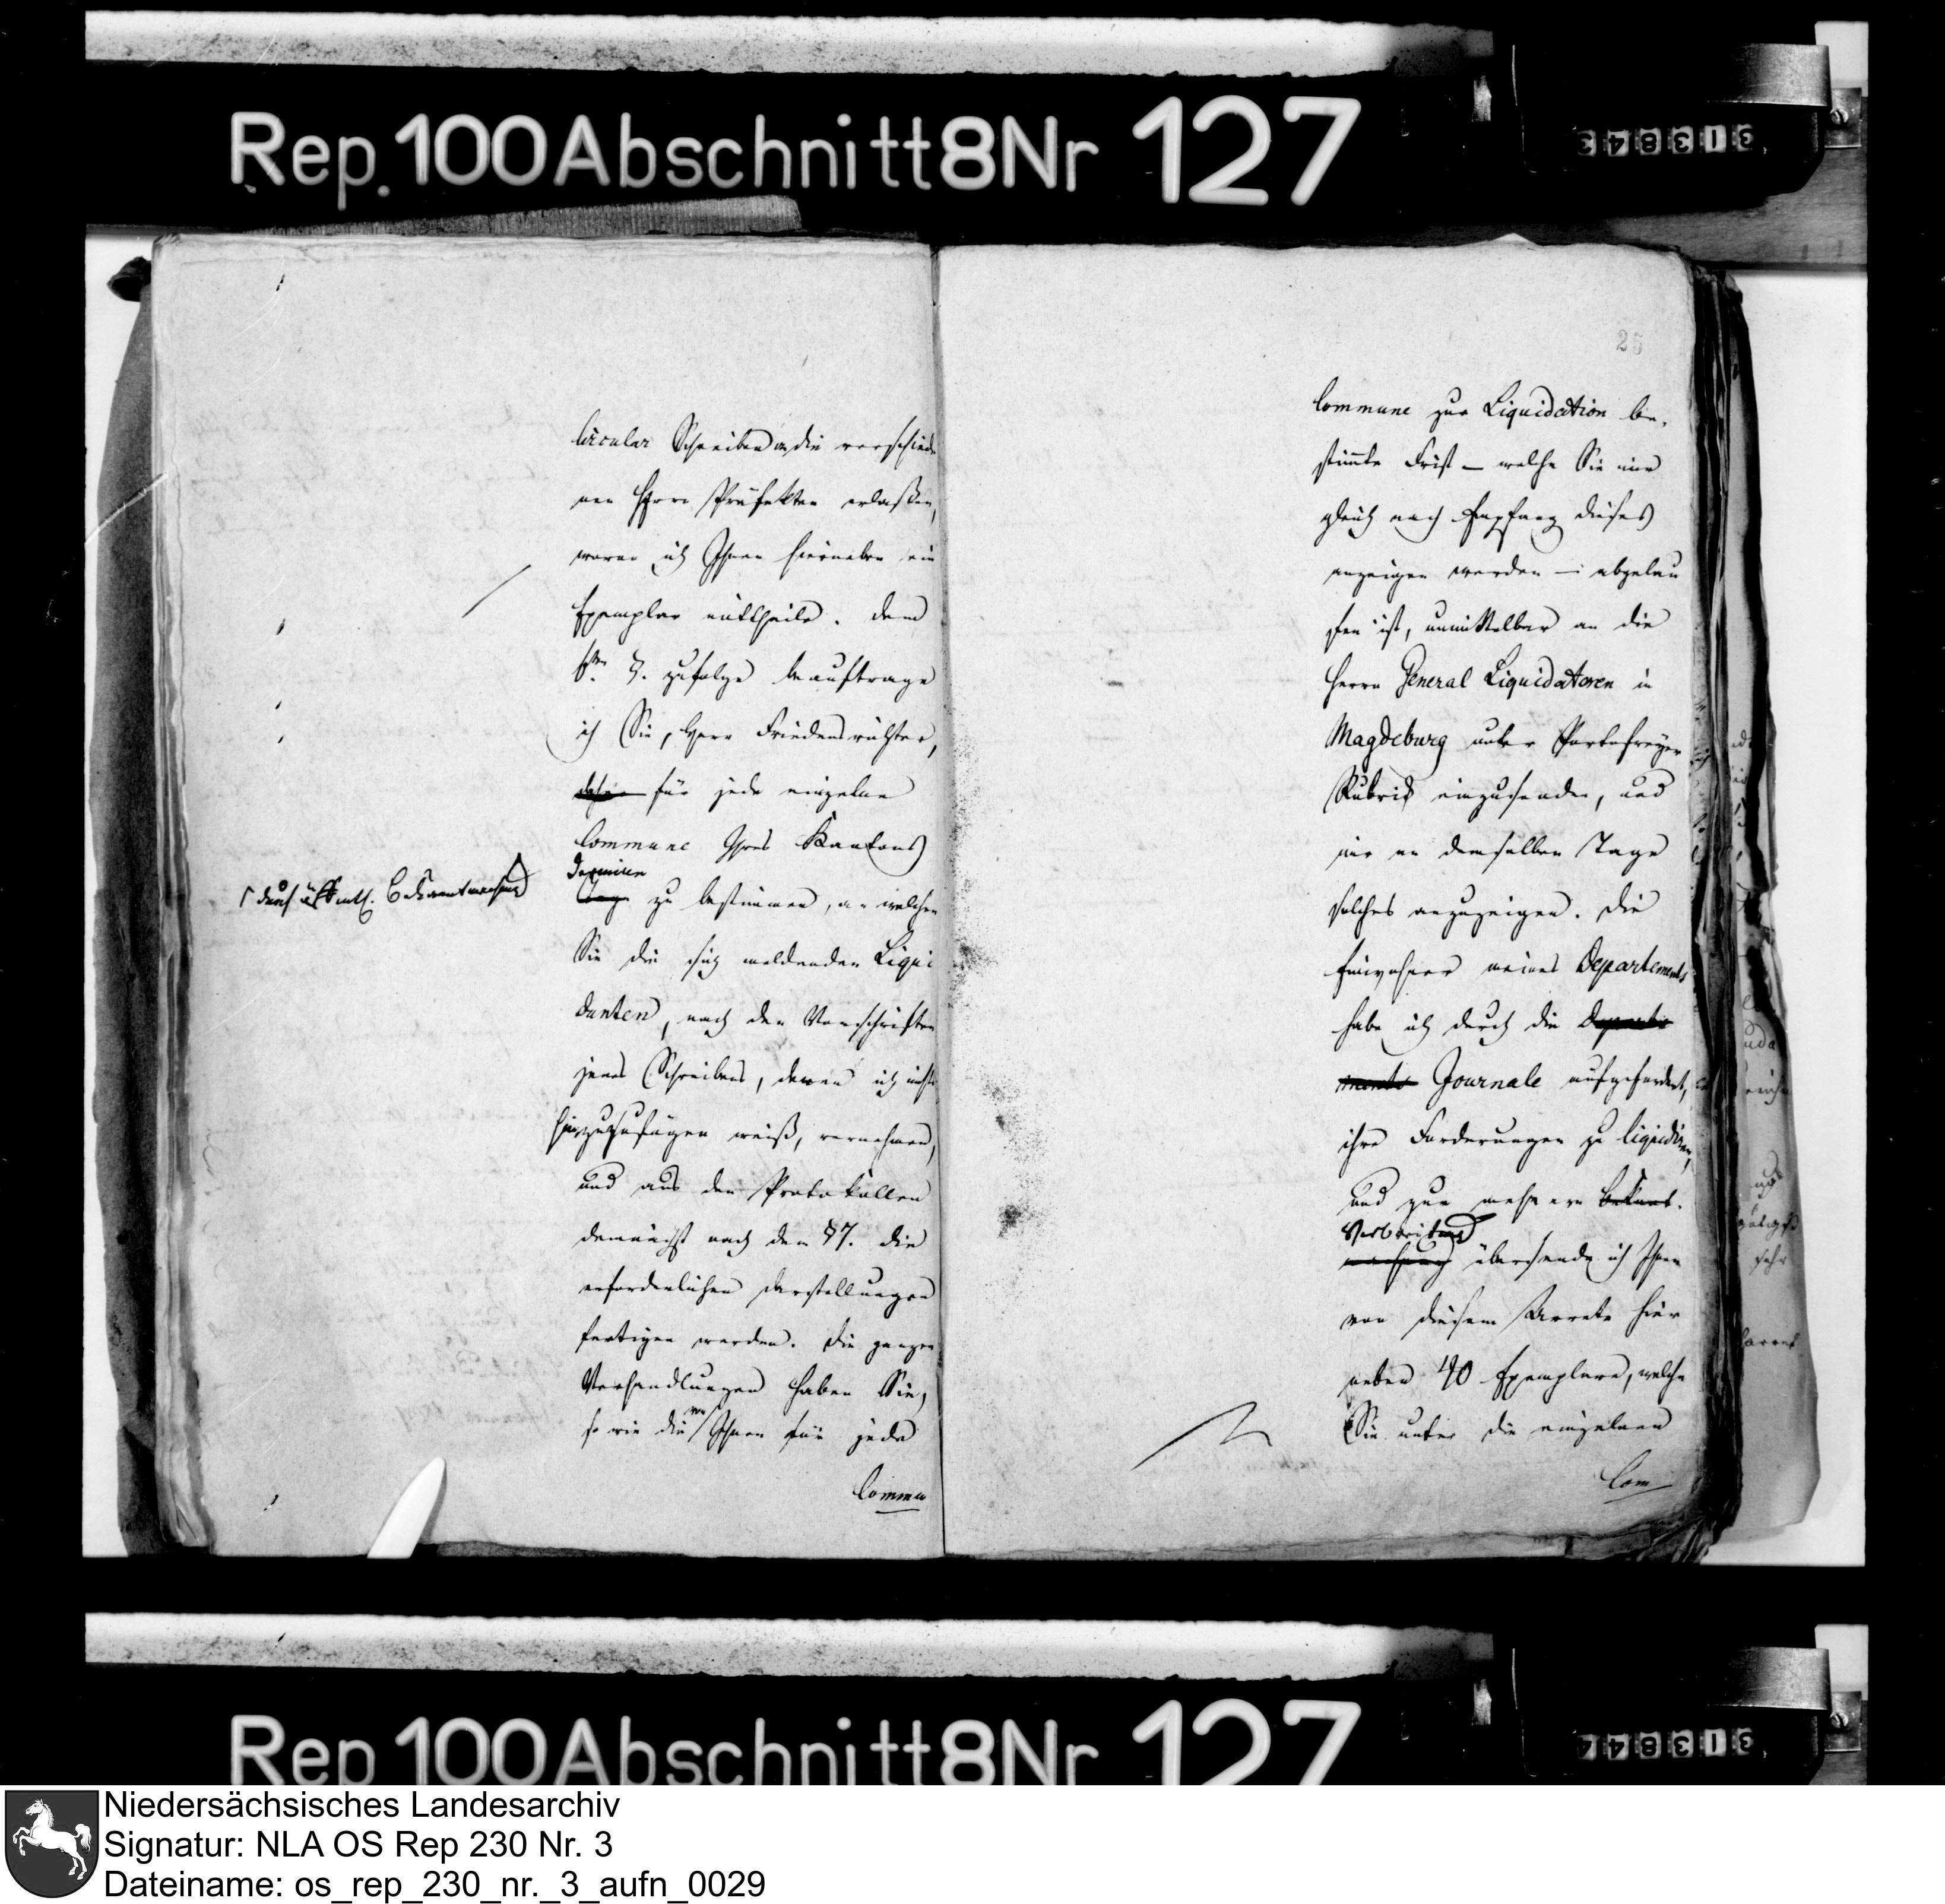 Rep. 100 Abschnitt 8 Nr 127
313843
Circular Schreiben an die verschiede
nen Herrn Präfekten erlaßen,
wovon ich Ihnen hierneben ein
Exemplar mittheile. Dem
§. 3. zufolge beauftrage
ich Sie, Herr Friedensrichter,
für jede einzelne
Commune Ihres Kantons
Termine
Tage zu bestimmen, an welchen
⌈ durch öffentl. Bekanntmachung
Sie die sich meldenden Liqui
danten, nach den Vorschriften
jenes Schreibens, denen ich nichts
hinzuzufügen weiß, vernehmen,
und aus den Protokollen
demnächst nach dem §7. die
erforderlichen Darstellungen
fertigen werden. Die ganzen
Verhandlungen haben Sie,
so wie die von Ihnen für jede
Commu
25
Commune zur Liquidation be-
stimmte Frist — welche Sie mir
gleich nach Empfang dieses
anzeigen werden — abgelau
fen ist, unmittelbar an die
Herrn General Liquidatoren in
Magdeburg unter Portofreyer
Rubrik einzusenden, und
mir an demselben Tage
solches anzuzeigen. Die
Einwohner meines Departements
habe ich durch die Departe
ments Journale aufgefordert,
ihre Forderungen zu liquidiren,
und zur mehrern Bekant-
Verbreitung
machung übersende ich Ihnen
von diesem Arrete hier
neben 40 Exemplare, welche
Sie unter die einzelnen
Com
Rep 100 Abschnitt 8 Nr 127
313844
Niedersächsisches Landesarchiv
Signatur: NLA OS Rep 230 Nr. 3
Dateiname: os_rep_230_nr._3_aufn_0029